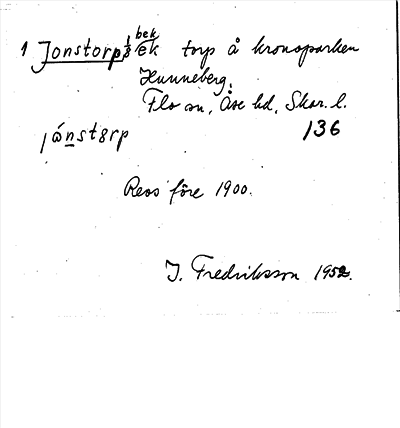 1 Jonstorp, bek torp å kronoparken
Hunneberg,
Flo sn, Åse hd, Skar. l.
jånstɞrp 136
Revs före 1900.
J. Fredriksson 1952.